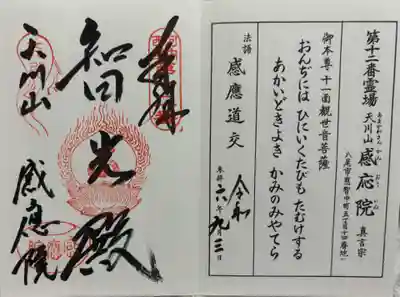 第十二番霊場
天川山 感応院 真言宗
あまかわさん かんのういん
八尾市恩智中町五丁目十四番地
御本尊 十一面観世音菩薩
おんぢには ひにいくたびも たむけする
あかいどきよき かみのみやてら
法語 感應道交
奉拝 令和六年九月三日
奉拝
智光殿
天川山
感應院